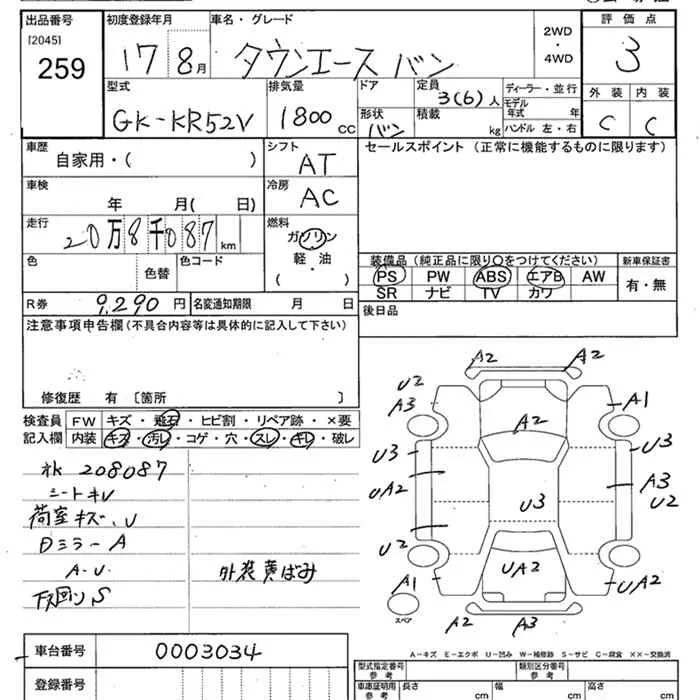 出品番号 初度登録年月 車名・グレード 2WD ・ 4WD 評価点
[2045]
259 17 8月 タウンエース バン 3
型式 排気量 ドア 定員 ディーラー・並行 外装 内装
GK-KR52V 1800 cc 3(6)人 モデル年式 年 C C
形状 バン 積載 kg ハンドル 左・右
車歴 シフト セールスポイント (正常に機能するものに限ります)
自家用・( ) AT
車検 冷房
年 月( 日) AC
走行 燃料
20万8千087 km ガソリン
軽・油
( )
色 色替 色コード
装備品 (純正品に限り○をつけてください) 新車保証書
PS PW ABS エアB AW 有・無
SR ナビ TV カワ
R券 9,290 円 名変通知期限 月 日 後日品
注意事項申告欄 (不具合内容等は具体的に記入して下さい)
修復歴 有 〔箇所 〕
検査員 FW キズ・飛石・ヒビ割・リペア跡・×要
記入欄 内装 キズ・汚レ・コゲ・穴・スレ・キレ・破レ
208087
シートキレ
荷室キズ、U
Dミラー A
A・U 外装黄ばみ
下回りS
A2 A2
U2
A3 A2 A1
U3 U3
UA2 U3 A3
U2
U2 UA2 UA2
A1
スペア A2 A3
車台番号 0003034
A-キズ E-エクボ U-凹み W-補修跡 S-サビ C-腐食 ××-交換済
登録番号
型式指定番号 参考 類別区分番号 参考
車庫証明用 参考 長さ cm 幅 cm 高さ cm